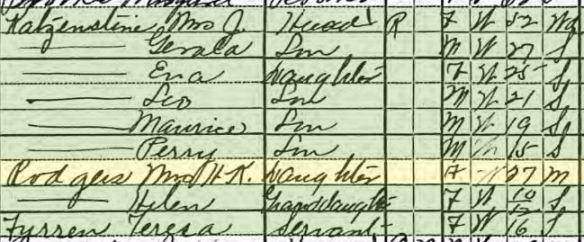 Katzenstine Mrs J. Head R F W 52 Wd
—— Gerald Son M W 27 S
—— Eva Daughter F W 25 S
—— Leo Son M W 21 S
—— Maurice Son M W 19 S
—— Perry Son M W 15 S
Rodgers Mrs H. K. Daughter F W 27 M
—— Helen Granddaughter F W 10/12 S
Fyrren Teresa Servant F W 16 S